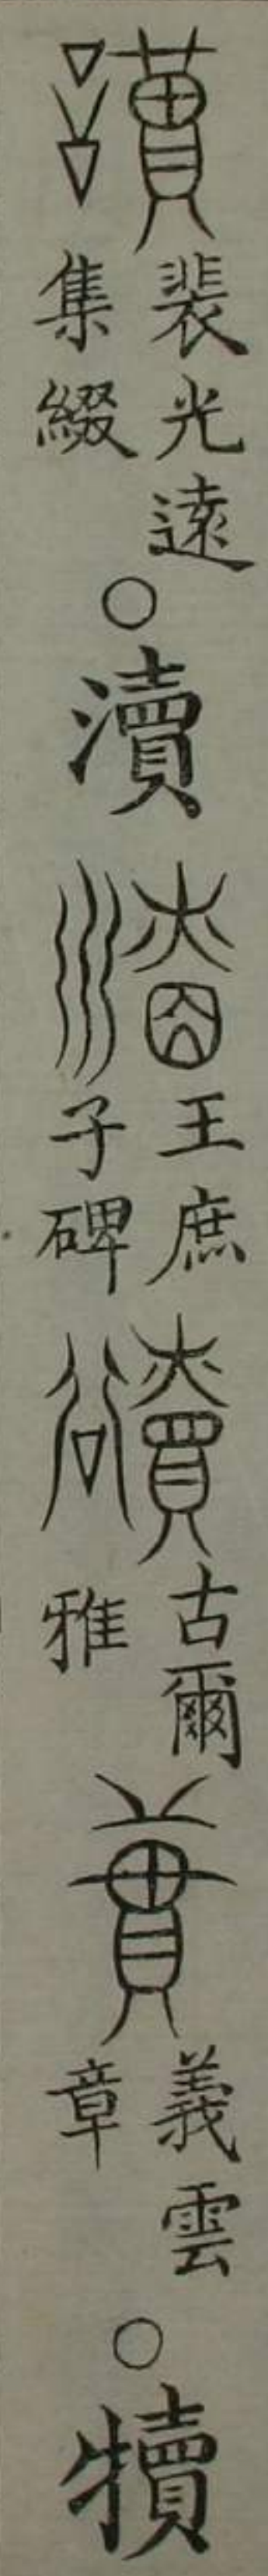 裴光遠
集綴
○瀆
王庶
子碑
古爾
雅
義雲
章
○犢